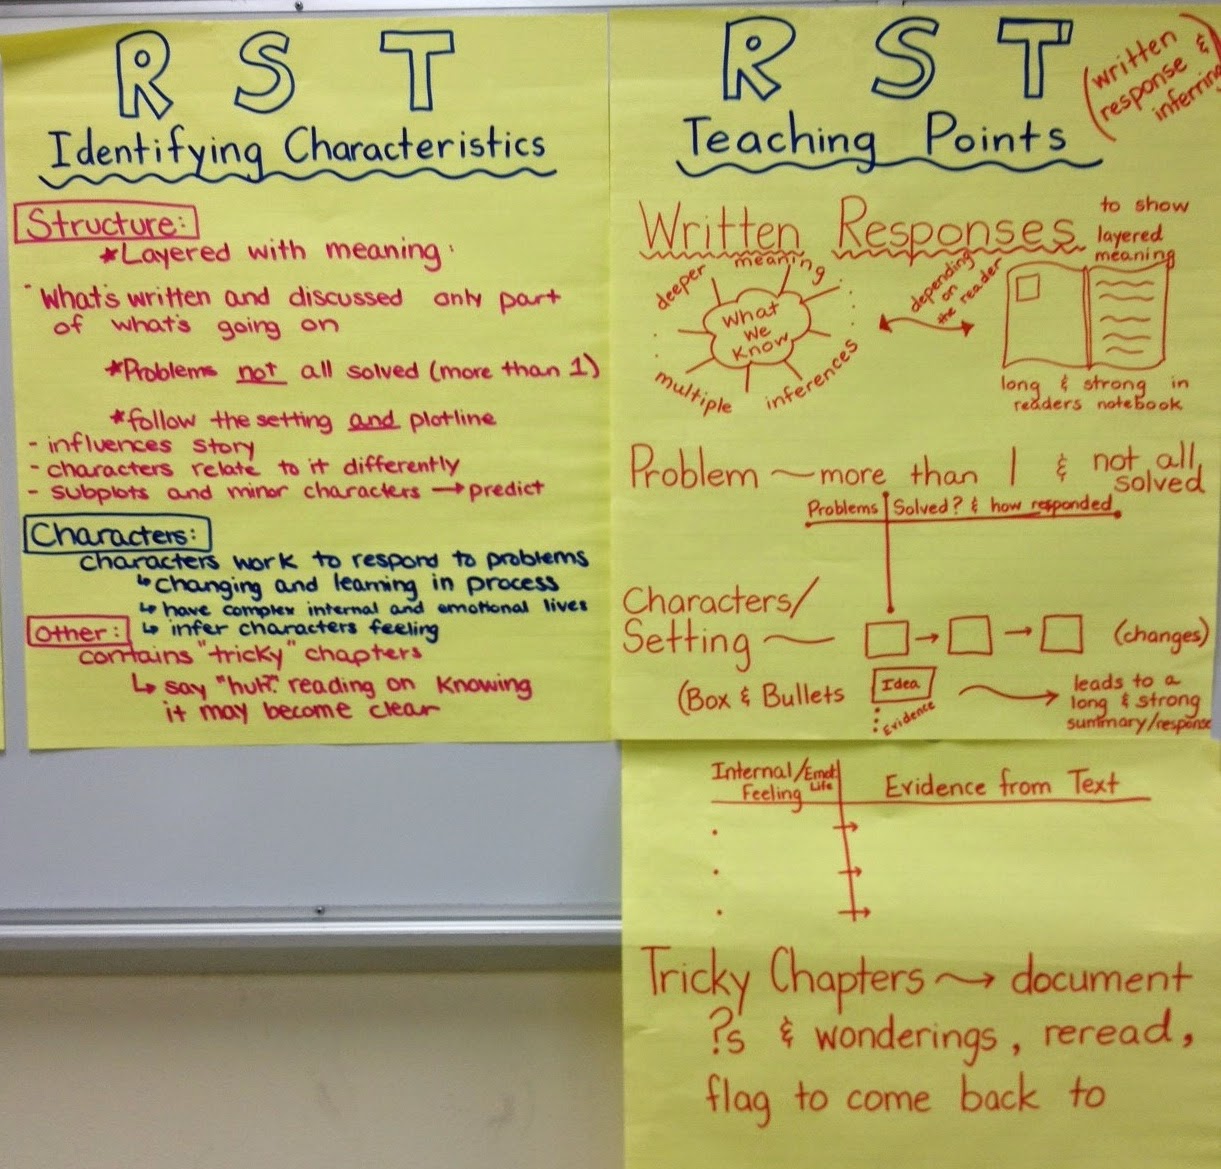 R S T
Identifying Characteristics
Structure:
*Layered with meaning:
- What's written and discussed only part
of what's going on
*Problems not all solved (more than 1)
*follow the setting and plotline
- influences story
- characters relate to it differently
- subplots and minor characters → predict
Characters:
characters work to respond to problems
↳ changing and learning in process
↳ have complex internal and emotional lives
↳ infer characters feeling
Other:
contains "tricky" chapters
↳ say "huh?" reading on knowing
it may become clear
R S T
(written
response &
inferring)
Teaching Points
Written Responses
to show
layered
meaning
deeper meaning
What
we
know
multiple inferences
depending
on
the reader
long & strong in
readers notebook
Problem ~ more than 1 & not all
solved
Problems | Solved? & how responded
Characters/
Setting ~ □ → □ → □ (changes)
(Box & Bullets
Idea
Evidence
leads to a
long & strong
summary/response
Internal/Emot.
Life
Feeling
Evidence from Text
Tricky Chapters → document
?s & wonderings, reread,
flag to come back to